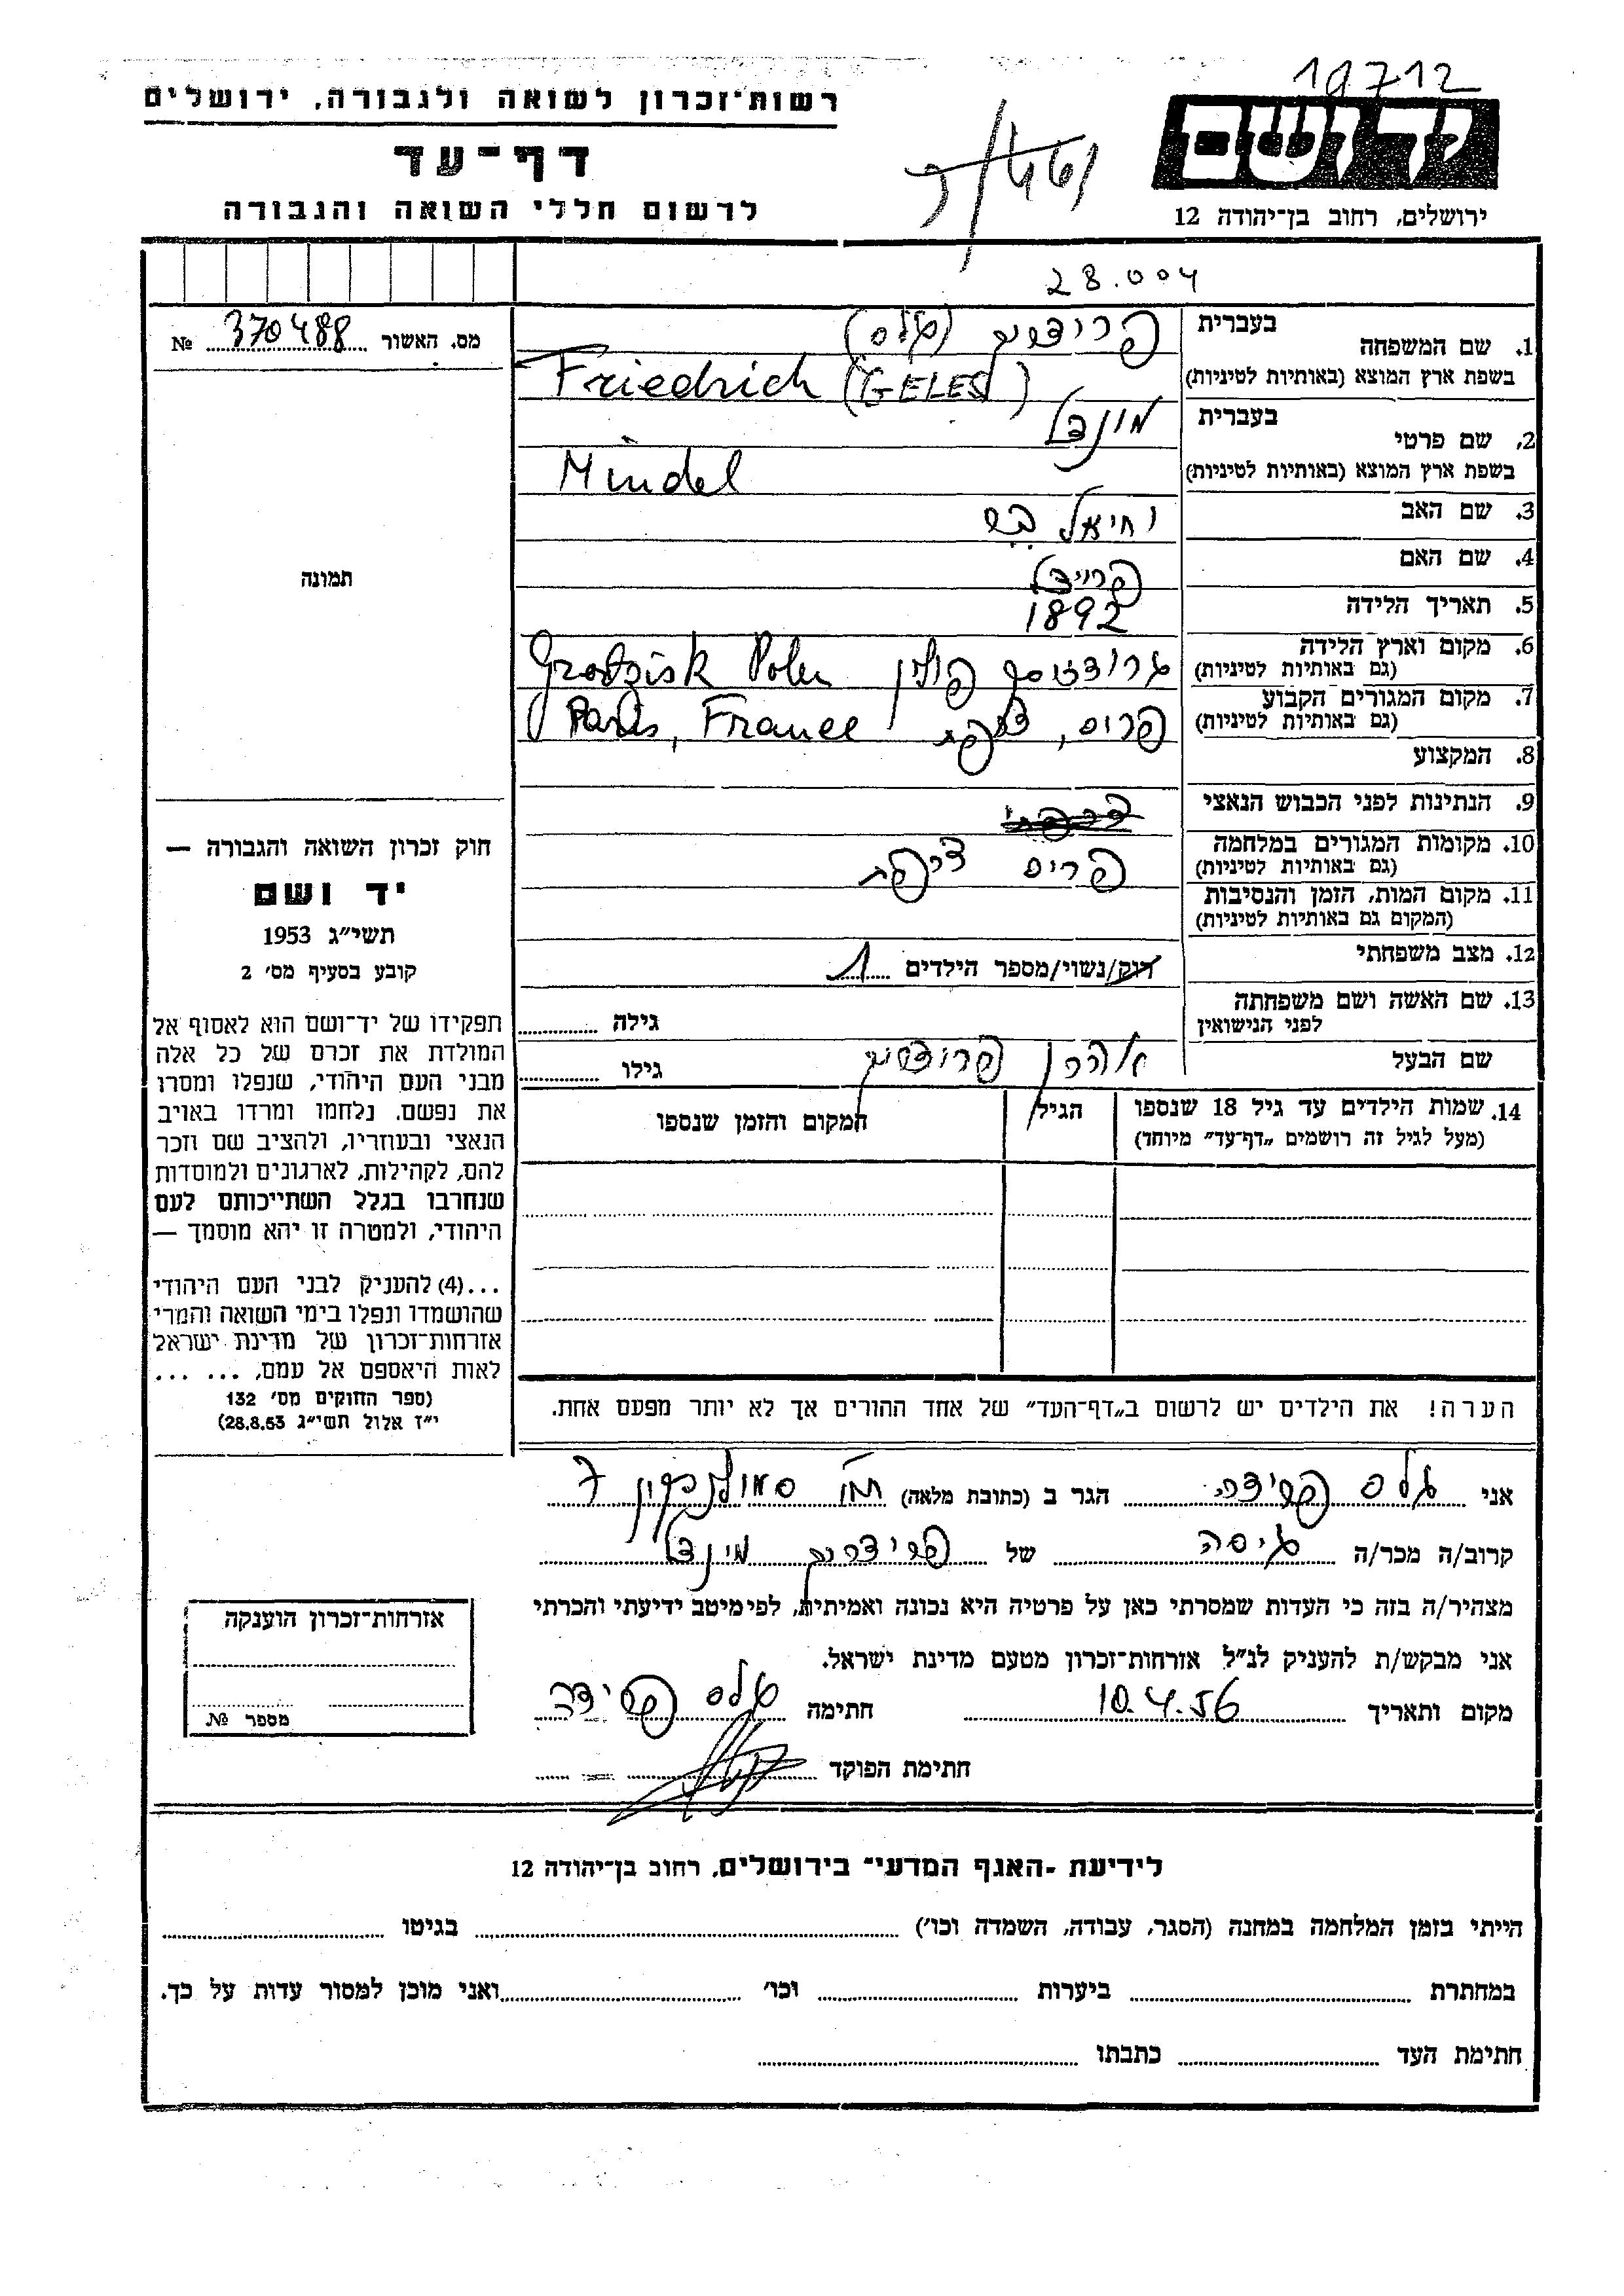 19712
רשות־זכרון לשואה ולגבורה, ירושלים
דף־עד
לרשום חללי השואה והגבורה
יד ושם
ירושלים, רחוב בן־יהודה 12
28.004
מס. האשור 370488 №
תמונה
1. שם המשפחה
בעברית פרידריך (גלס)
בשפת ארץ המוצא (באותיות לטיניות) Friedrich (GELES)
2. שם פרטי
בעברית מונדל
בשפת ארץ המוצא (באותיות לטיניות) Mindel
3. שם האב יחיאל
4. שם האם פריידל
5. תאריך הלידה 1892
6. מקום וארץ הלידה
(גם באותיות לטיניות) גרודזיסק פולין Grodzisk Polen
7. מקום המגורים הקבוע
(גם באותיות לטיניות) פריס, צרפת Paris, France
8. המקצוע
9. הנתינות לפני הכבוש הנאצי
10. מקומות המגורים במלחמה
(גם באותיות לטיניות) פריס צרפת
11. מקום המות, הזמן והנסיבות
(המקום גם באותיות לטיניות)
12. מצב משפחתי רווק/נשוי/מספר הילדים 1
13. שם האשה ושם משפחתה
לפני הנישואין גילה
שם הבעל אהרן פרידריך גילו
14. שמות הילדים עד גיל 18 שנספו
(מעל לגיל זה רושמים „דף־עד" מיוחד)
הגיל
המקום והזמן שנספו
חוק זכרון השואה והגבורה —
יד ושם
תשי"ג 1953
קובע בסעיף מס' 2
תפקידו של יד־ושם הוא לאסוף אל
המולדת את זכרם של כל אלה
מבני העם היהודי, שנפלו ומסרו
את נפשם, נלחמו ומרדו באויב
הנאצי ובעוזריו, ולהציב שם וזכר
להם, לקהילות, לארגונים ולמוסדות
שנחרבו בגלל השתייכותם לעם
היהודי, ולמטרה זו יהא מוסמך —
...(4) להעניק לבני העם היהודי
שהושמדו ונפלו בימי השואה והמרי
אזרחות־זכרון של מדינת ישראל
לאות היאספם אל עמם, ... ...
(ספר החוקים מס' 132
י"ז אלול תשי"ג 28.8.53)
הערה! את הילדים יש לרשום ב„דף־העד" של אחד ההורים אך לא יותר מפעם אחת.
אני גלס פרידה הגר ב (כתובת מלאה) 7
קרוב/ה מכר/ה גיסה של פרידריך מינדל
מצהיר/ה בזה כי העדות שמסרתי כאן על פרטיה היא נכונה ואמיתית, לפי מיטב ידיעתי והכרתי
אני מבקש/ת להעניק לנ"ל אזרחות־זכרון מטעם מדינת ישראל.
מקום ותאריך 10.4.56 חתימה גלס פרידה
חתימת הפוקד
אזרחות־זכרון הוענקה
מספר №
לידיעת ־האגף המדעי״ בירושלים, רחוב בן־יהודה 12
הייתי בזמן המלחמה במחנה (הסגר, עבודה, השמדה וכו') בגיטו
במחתרת ביערות וכו' ואני מוכן למסור עדות על כך.
חתימת העד כתבתו